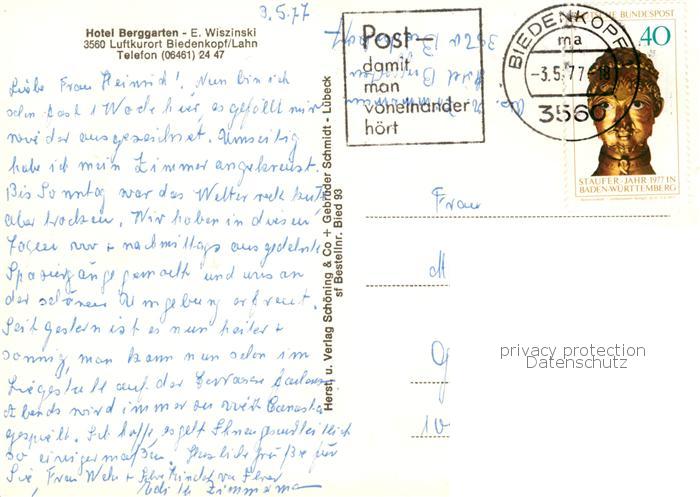 3.5.77
Hotel Berggarten - E. Wiszinski
3560 Luftkurort Biedenkopf/Lahn
Telefon (06461) 24 47
Liebe Frau Heinrich! Nun bin ich
schon fast 1 Woche hier, es gefällt mir
wieder ausgezeichnet. Umseitig
habe ich mein Zimmer angekreuzt.
Bis Sonntag war das Wetter recht kühl
aber trocken. Wir haben in diesen
Tagen vor + nachmittags ausgedehnte
Spaziergänge gemacht und uns an
der schönen Umgebung erfreut.
Seit gestern ist es nun heiter +
sonnig, man kann nun schon im
Liegestuhl auf der Terrasse
Abends wird immer Canasta
gespielt. Ich hoffe, es geht Ihnen gesundheitlich
so einigermaßen. Herzliche Grüße für
Sie, Frau + von Ihrer
Edith Zimmermann
Herst. u. Verlag Schöning & Co + Gebrüder Schmidt - Lübeck
sf Bestellnr. Bied 93
Post-
damit
man
voneinander
hört
BIEDENKOPF
ma
-3.5.77-18
3560
DEUTSCHE BUNDESPOST
40
STAUFER-JAHR 1977 IN
BADEN-WÜRTTEMBERG
Hotel Berggarten
Frau
privacy protection
Datenschutz